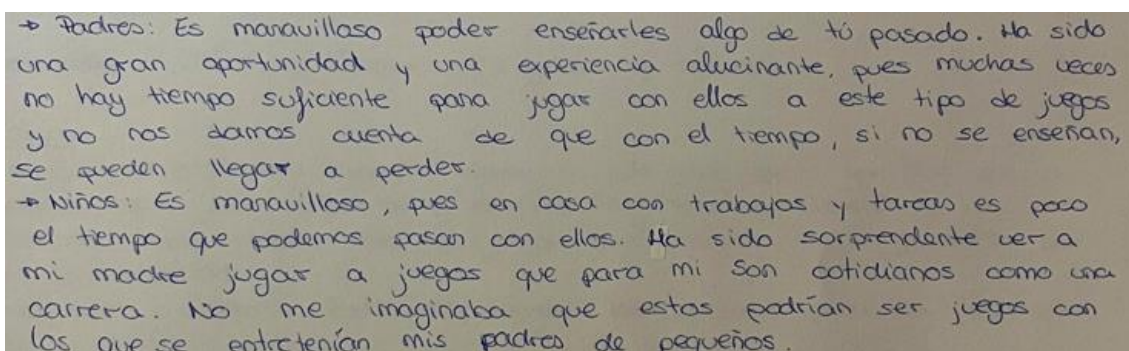 → Padres: Es maravilloso poder enseñarles algo de tú pasado. Ha sido
una gran oportunidad y una experiencia alucinante, pues muchas veces
no hay tiempo suficiente para jugar con ellos a este tipo de juegos
y no nos damos cuenta de que con el tiempo, si no se enseñan,
se pueden llegar a perder.
→ Niños: Es maravilloso, pues en casa con trabajos y tareas es poco
el tiempo que podemos pasar con ellos. Ha sido sorprendente ver a
mi madre jugar a juegos que para mi son cotidianos como una
carrera. No me imaginaba que estos podrían ser juegos con
los que se entretenían mis padres de pequeños.